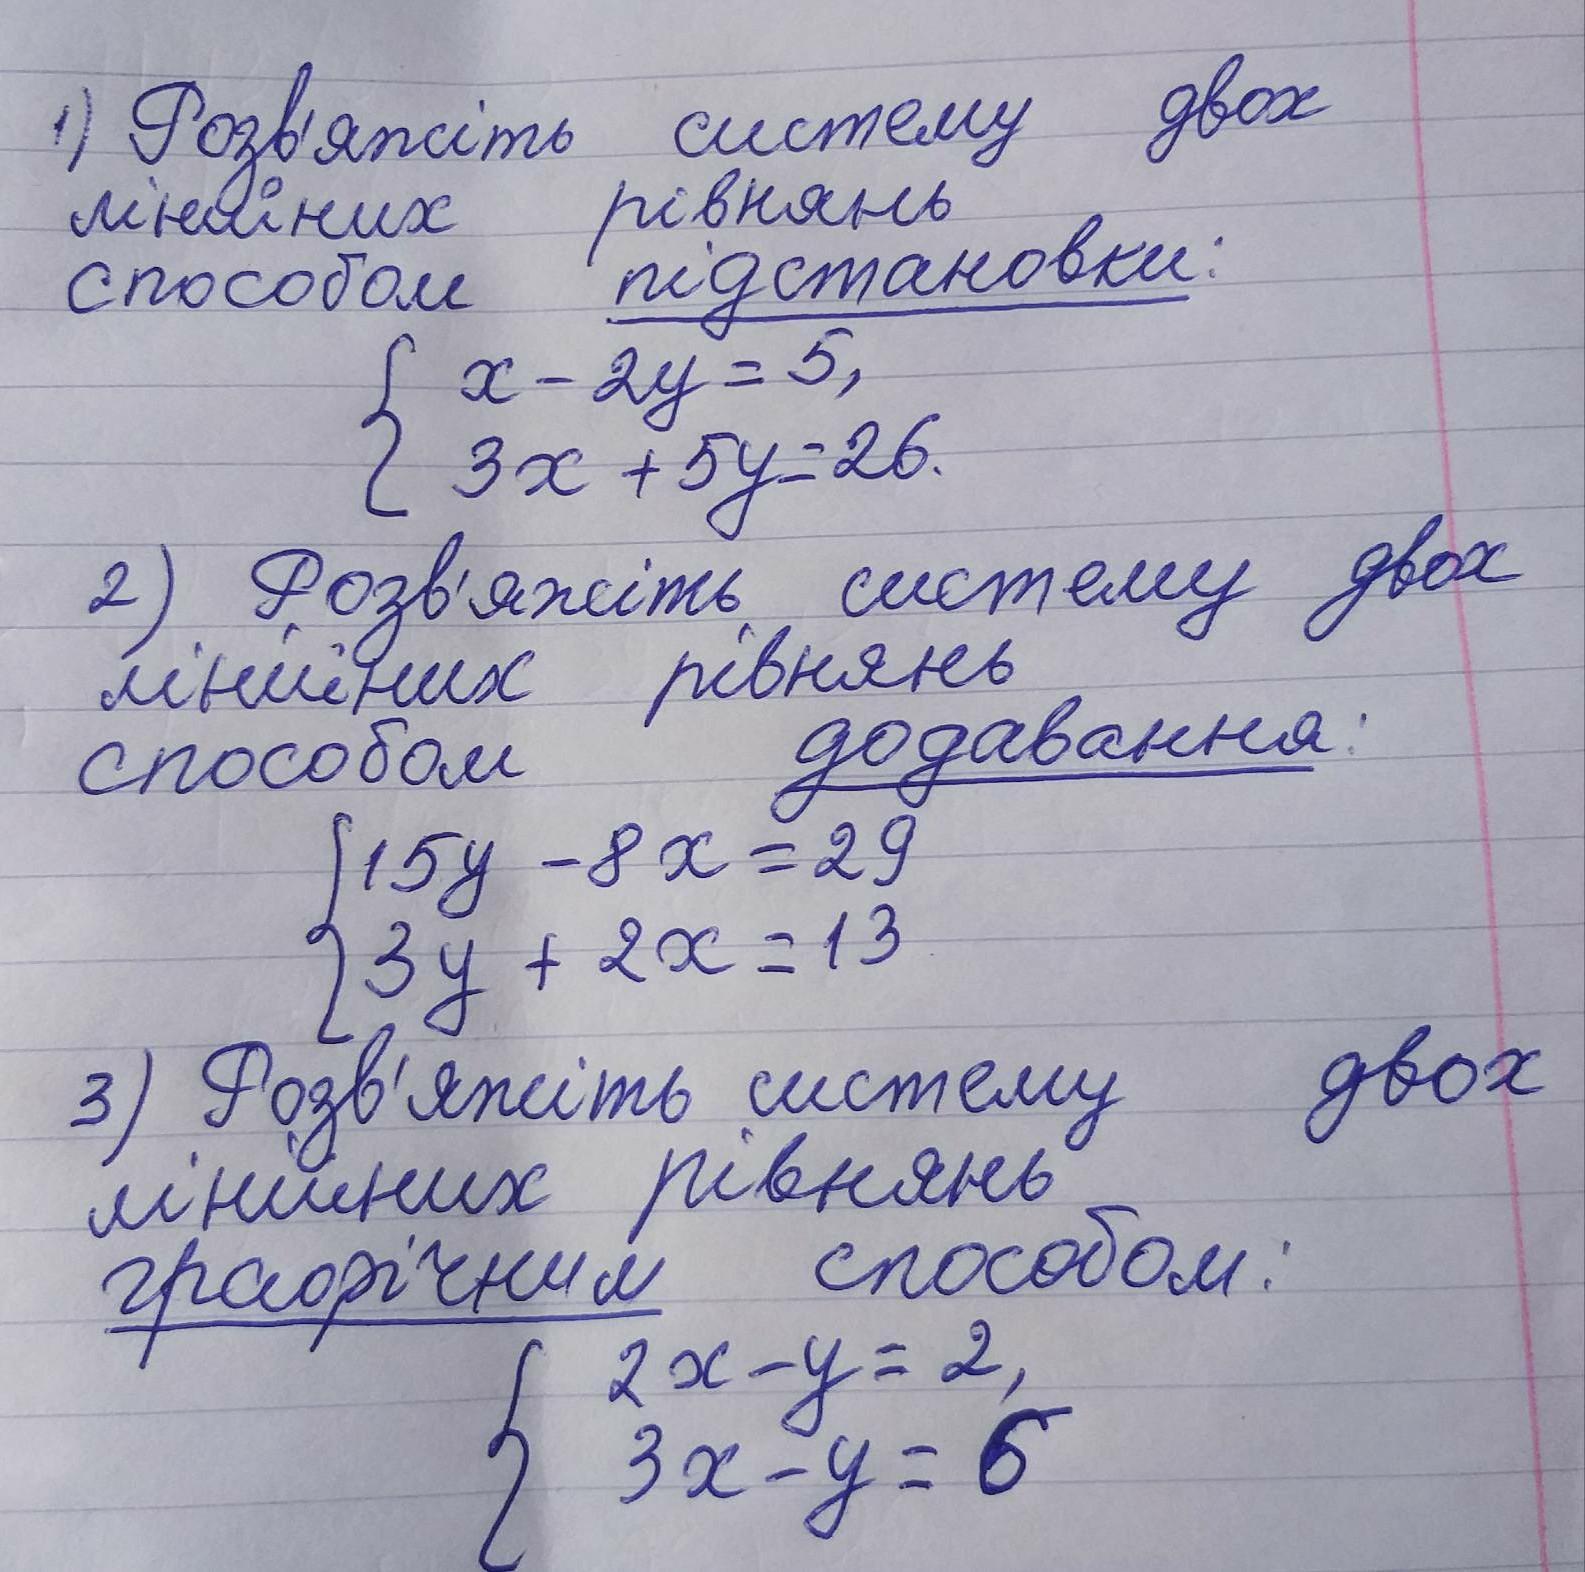 1) Розв'яжіть систему двох
лінійних рівнянь
способом підстановки:
x - 2y = 5,
3x + 5y = 26.
2) Розв'яжіть систему двох
лінійних рівнянь
способом додавання:
15y - 8x = 29
3y + 2x = 13
3) Розв'яжіть систему двох
лінійних рівнянь
графічним способом:
2x - y = 2,
3x - y =